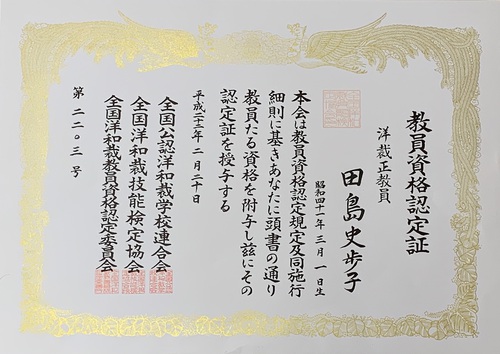 教員資格認定証
洋裁正教員
田島史歩子
昭和四十一年三月一日生
本会は教員資格認定規定及同施行
細則に基きあなたに頭書の通り
教員たる資格を附与し茲にその
認定証を授与する
平成二十六年二月二十日
全国公認洋和裁学校連合会
全国洋和裁技能検定協会
全国洋和裁教員資格認定委員会
第二二〇三号